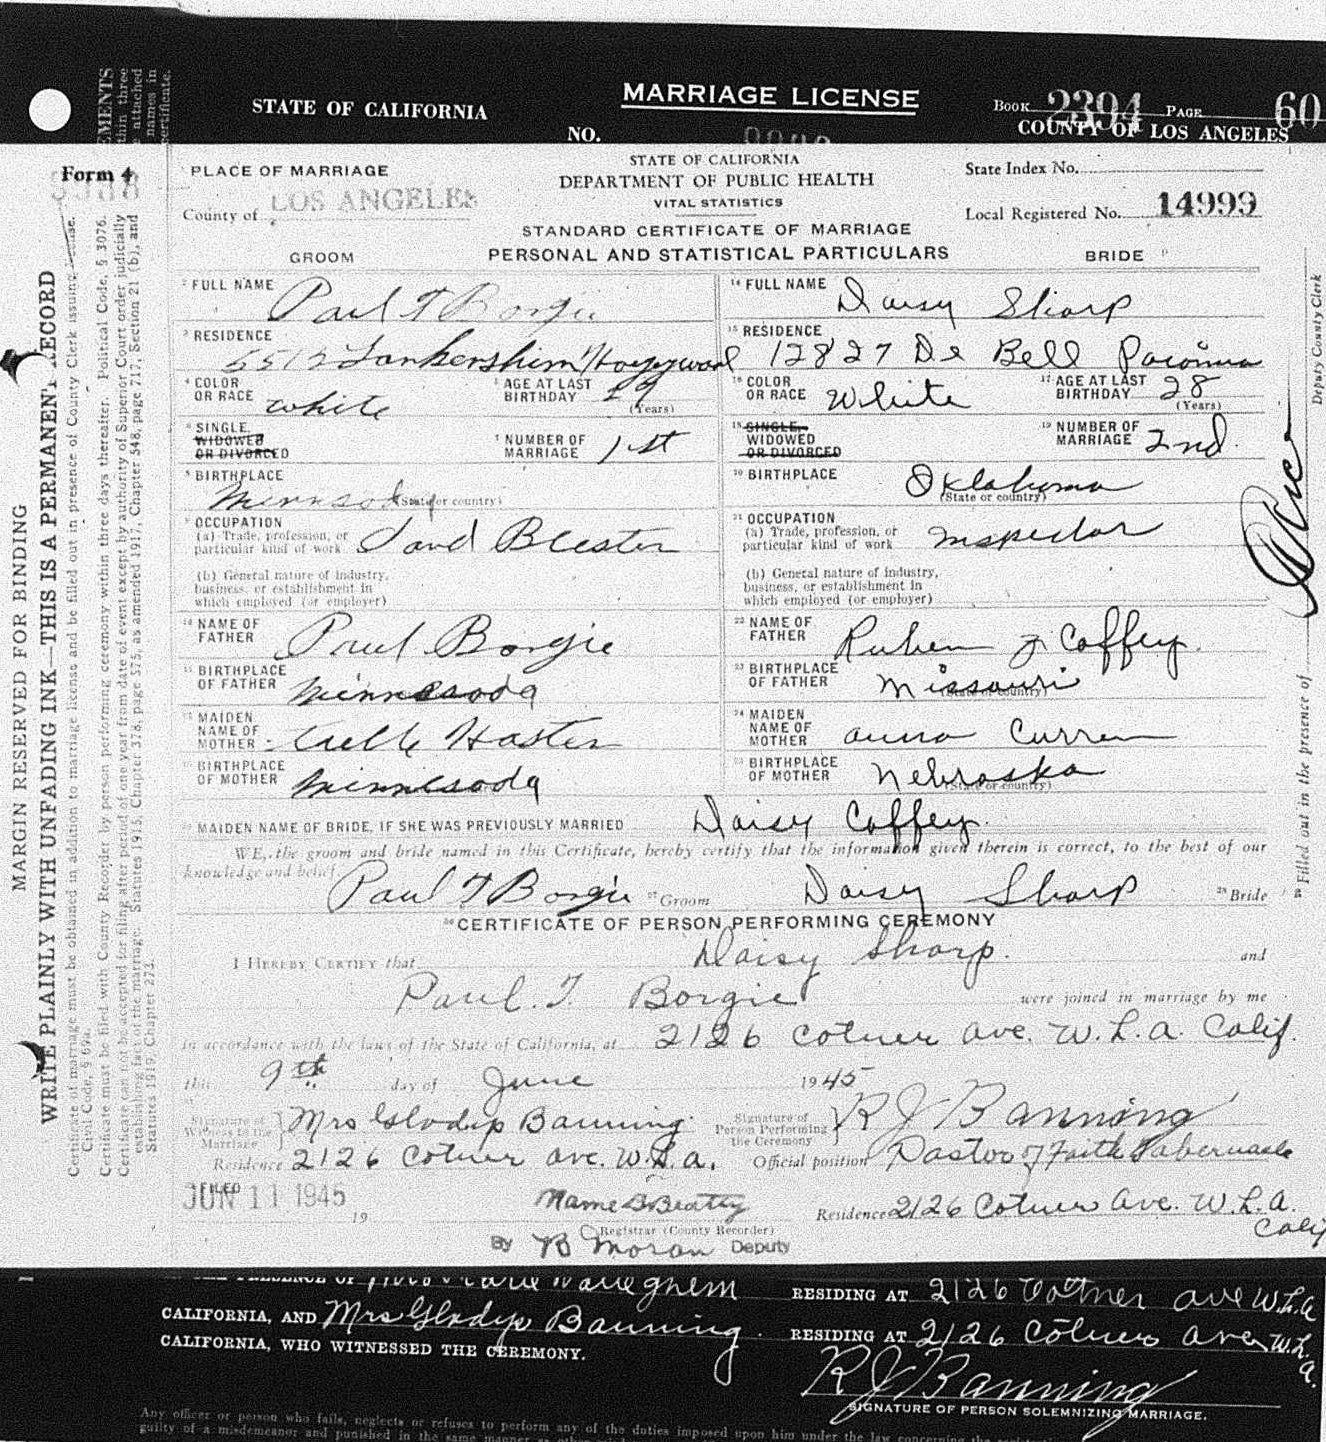 STATE OF CALIFORNIA
MARRIAGE LICENSE
BOOK 2394 PAGE 60
NO.
COUNTY OF LOS ANGELES
Form 4
PLACE OF MARRIAGE
County of LOS ANGELES
STATE OF CALIFORNIA
DEPARTMENT OF PUBLIC HEALTH
VITAL STATISTICS
STANDARD CERTIFICATE OF MARRIAGE
State Index No.
Local Registered No. 14999
GROOM PERSONAL AND STATISTICAL PARTICULARS BRIDE
FULL NAME Paul T Borgie
14 FULL NAME Daisy Sharp
3 RESIDENCE 5512 Lankershim
15 RESIDENCE 12827 De Bell Pacoima
4 COLOR OR RACE white
5 AGE AT LAST BIRTHDAY 29 (Years)
16 COLOR OR RACE White
17 AGE AT LAST BIRTHDAY 28 (Years)
6 SINGLE, WIDOWED OR DIVORCED
7 NUMBER OF MARRIAGE 1st
18 SINGLE, WIDOWED OR DIVORCED
19 NUMBER OF MARRIAGE 2nd
8 BIRTHPLACE (State or country)
20 BIRTHPLACE Oklahoma (State or country)
9 OCCUPATION
(a) Trade, profession, or
particular kind of work Sand Blaster
21 OCCUPATION
(a) Trade, profession, or
particular kind of work Inspector
(b) General nature of industry,
business, or establishment in
which employed (or employer)
(b) General nature of industry,
business, or establishment in
which employed (or employer)
10 NAME OF FATHER Paul Borgie
22 NAME OF FATHER Ruben J Coffey
11 BIRTHPLACE OF FATHER Minnesoda
23 BIRTHPLACE OF FATHER Missouri (State or country)
12 MAIDEN NAME OF MOTHER
24 MAIDEN NAME OF MOTHER anna Curren
13 BIRTHPLACE OF MOTHER Minnesoda
25 BIRTHPLACE OF MOTHER Nebraska (State or country)
MAIDEN NAME OF BRIDE, IF SHE WAS PREVIOUSLY MARRIED Daisy Coffey.
WE, the groom and bride named in this Certificate, hereby certify that the information given therein is correct, to the best of our
knowledge and belief.
Paul T Borgie 27 Groom Daisy Sharp 28 Bride
CERTIFICATE OF PERSON PERFORMING CEREMONY
I HEREBY CERTIFY that Daisy Sharp. and
Paul. T. Borgie were joined in marriage by me
in accordance with the laws of the State of California, at 2126 Cotner ave. W. L. a. Calif.
this 9th day of June 1945
Signature of Witness to the Marriage Mrs Gladys Banning
Signature of Person Performing the Ceremony R J Banning
Residence 2126 Cotner ave. W. L. a.
Official position Pastor of Faith Tabernacle
FILED JUN 11 1945
19
Mame B Beatty
Registrar (County Recorder)
By B Moran Deputy
Residence 2126 Cotner Ave. W. L. a.
Calif
RESIDING AT 2126 Cotner ave W.L.a
CALIFORNIA, AND Mrs Gladys Banning. RESIDING AT 2126 Cotner ave W.L.a.
CALIFORNIA, WHO WITNESSED THE CEREMONY.
R J Banning
SIGNATURE OF PERSON SOLEMNIZING MARRIAGE.
Any officer or person who fails, neglects or refuses to perform any of the duties imposed upon him under the law concerning the
guilty of a misdemeanor and punished in the same manner
MARGIN RESERVED FOR BINDING
WRITE PLAINLY WITH UNFADING INK—THIS IS A PERMANENT RECORD
Certificate of marriage must be obtained in addition to marriage license and be filled out in presence of County Clerk issuing license.
Civil Code, § 69a.
Certificate must be filed with County Recorder by person performing ceremony within three days thereafter. Political Code, § 3076.
Certificate can not be accepted for filing after period of one year from date of event except by authority of Superior Court order judicially
establishing fact of the marriage. Statutes 1915, Chapter 378, page 575, as amended 1917, Chapter 548, page 717, Section 21 (b), and
Statutes 1919, Chapter 273.
Filled out in the presence of
Deputy County Clerk